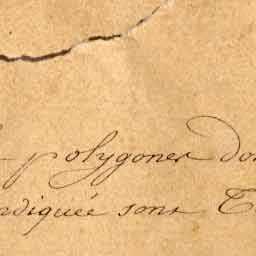 polygones don
ndiquée sont T